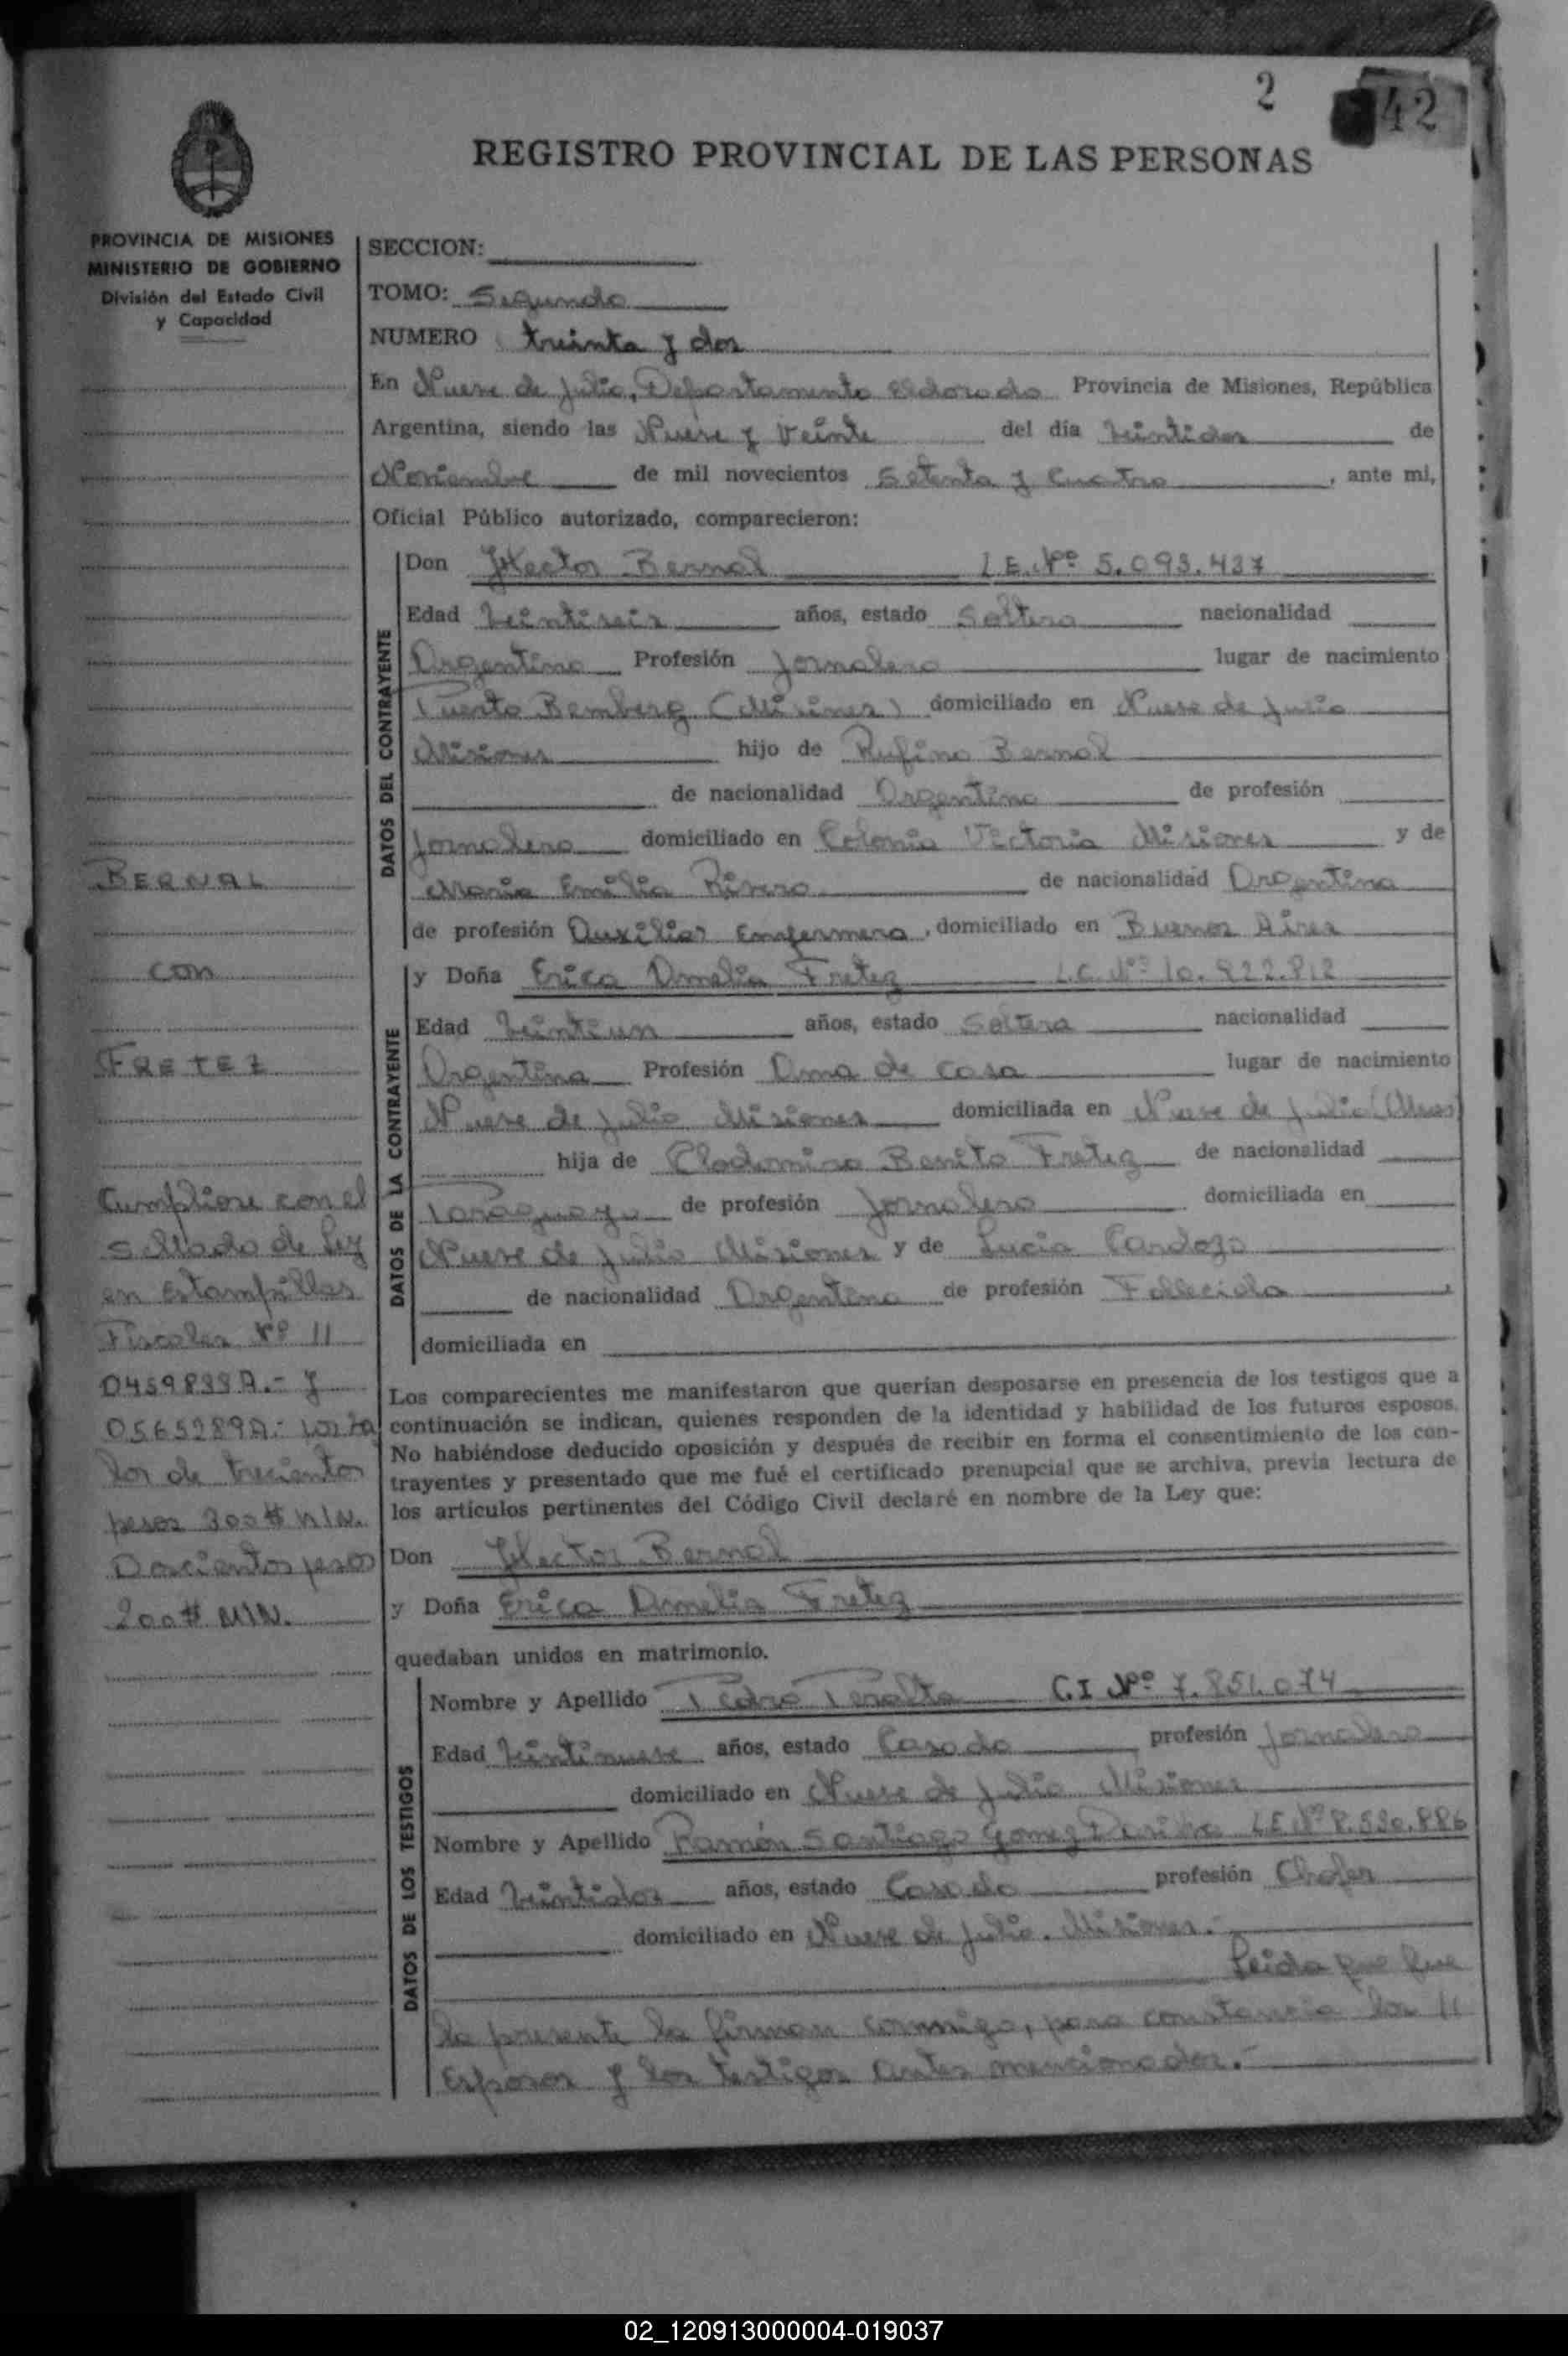 2 42
REGISTRO PROVINCIAL DE LAS PERSONAS
PROVINCIA DE MISIONES
MINISTERIO DE GOBIERNO
División del Estado Civil
y Capacidad
SECCION:
TOMO: Segundo
NUMERO treinta y dos
En Nueve de Julio, Departamento Eldorado Provincia de Misiones, República
Argentina, siendo las Nueve y Veinte del día Veintidos de
Noviembre de mil novecientos Setenta y Cuatro, ante mi,
Oficial Público autorizado, comparecieron:
DATOS DEL CONTRAYENTE
Don Hector Bernal L.E. Nº 5.093.437
Edad Veintiseis años, estado Soltero nacionalidad
Argentino Profesión Jornalero lugar de nacimiento
Puerto Bemberg (Misiones) domiciliado en Nueve de Julio
Misiones hijo de Rufino Bernal
de nacionalidad Argentino de profesión
Jornalero domiciliado en Colonia Victoria Misiones y de
Maria Emilia Rivero de nacionalidad Argentina
de profesión Auxiliar Enfermera, domiciliado en Buenos Aires
BERNAL
con
FRETEZ
DATOS DE LA CONTRAYENTE
y Doña Erica Amelia Fretez L.C. Nº 10.822.812
Edad Veintiun años, estado Soltera nacionalidad
Argentina Profesión Ama de casa lugar de nacimiento
Nueve de Julio Misiones domiciliada en Nueve de Julio (Mnes)
hija de Clodomiro Benito Fretez de nacionalidad
Paraguayo de profesión Jornalero domiciliada en
Nueve de Julio Misiones y de Lucia Cardozo
de nacionalidad Argentina de profesión Fallecida
domiciliada en
Cumpliose con el
Sellado de Ley
en Estampillas
Fiscales Nº 11
0459898A.- y
0565289A.-
lor de trecientos
pesos 300# M/N.
Doscientos pesos
200# M/N.
Los comparecientes me manifestaron que querían desposarse en presencia de los testigos que a
continuación se indican, quienes responden de la identidad y habilidad de los futuros esposos.
No habiéndose deducido oposición y después de recibir en forma el consentimiento de los con-
trayentes y presentado que me fué el certificado prenupcial que se archiva, previa lectura de
los artículos pertinentes del Código Civil declaré en nombre de la Ley que:
Don Hector Bernal
y Doña Erica Amelia Fretez
quedaban unidos en matrimonio.
DATOS DE LOS TESTIGOS
Nombre y Apellido Pedro Peralta C.I Nº 7.851.074
Edad Veintinueve años, estado Casado profesión Jornalero
domiciliado en Nueve de Julio Misiones
Nombre y Apellido Ramón Santiago Gomez L.E Nº 8.530.886
Edad Veintidos años, estado Casado profesión Chofer
domiciliado en Nueve de Julio. Misiones.-
Leida que fue
la presente la firman conmigo, para constancia los
Esposos y los testigos antes mencionados.-
02_120913000004-019037